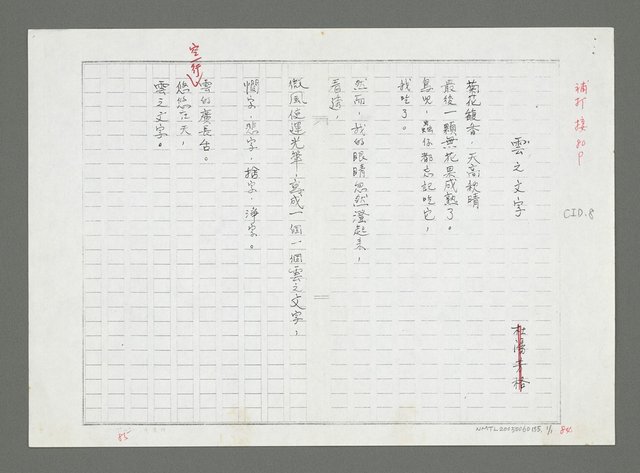 補打接80P
雲之文字
CID.8
杜潘芳格
菊花馥香，天高秋晴
最後一顆無花果成熟了。
鳥兒、蟲你都忘記吃它，
我吃了。
然而，我的眼睛忽然澄起來，
看遠，
微風使運光筆，寫成一個一個雲之文字，
憫字，悲字，捨字，淨字。
空一行
雲的廣長舌。
悠悠在天，
雲之文字。
85
NMTL20050060155, 1/1
84